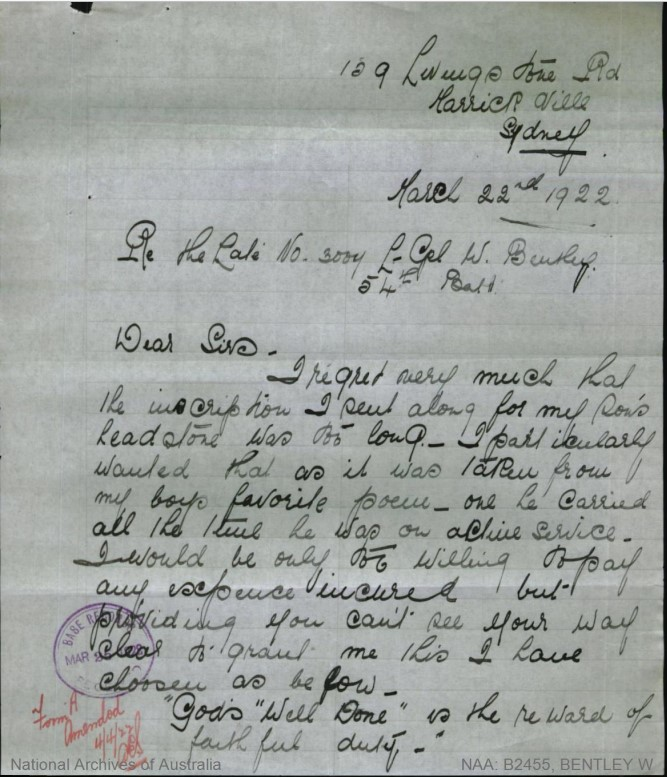 159 Livingstone Rd
Marrick Ville
Sydney
March 22nd 1922
Re the Late No. 3004 L-Cpl W. Bentley.
54th Batt.
Dear Sirs -
I regret very much that
the inscription I sent along for my son's
headstone was too long - I particularly
wanted that as it was taken from
my boys favorite poem - one he carried
all the time he was on active service -
I would be only too willing to pay
any expence incured but
providing you can't see your way
clear to grant me this I have
choosen as below -
"God's "Well Done" is the reward of
faithful duty. - "
BASE RE
MAR
Form A
Amended
4/4/22
National Archives of Australia
NAA: B2455, BENTLEY W